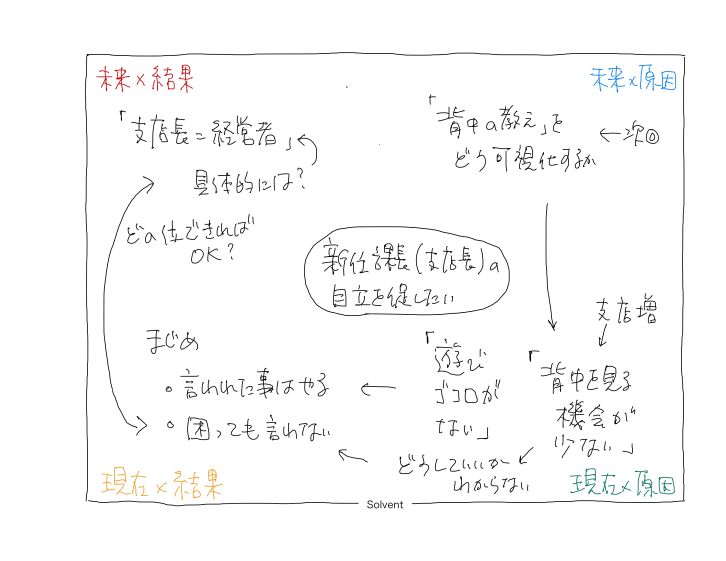 未来×結果
「支店長=経営者」
具体的には?
どの位できれば
OK?
未来×原因
「背中の教え」を
どう可視化するか
←次回
新任課長(支店長)の
自立を促したい
まじめ
・言われた事はやる
・困っても言わない
「遊び
ゴコロが
ない」
支店増
「背中を見る
機会が
少ない」
どうしていいか
わからない
現在×結果
現在×原因
Solvent